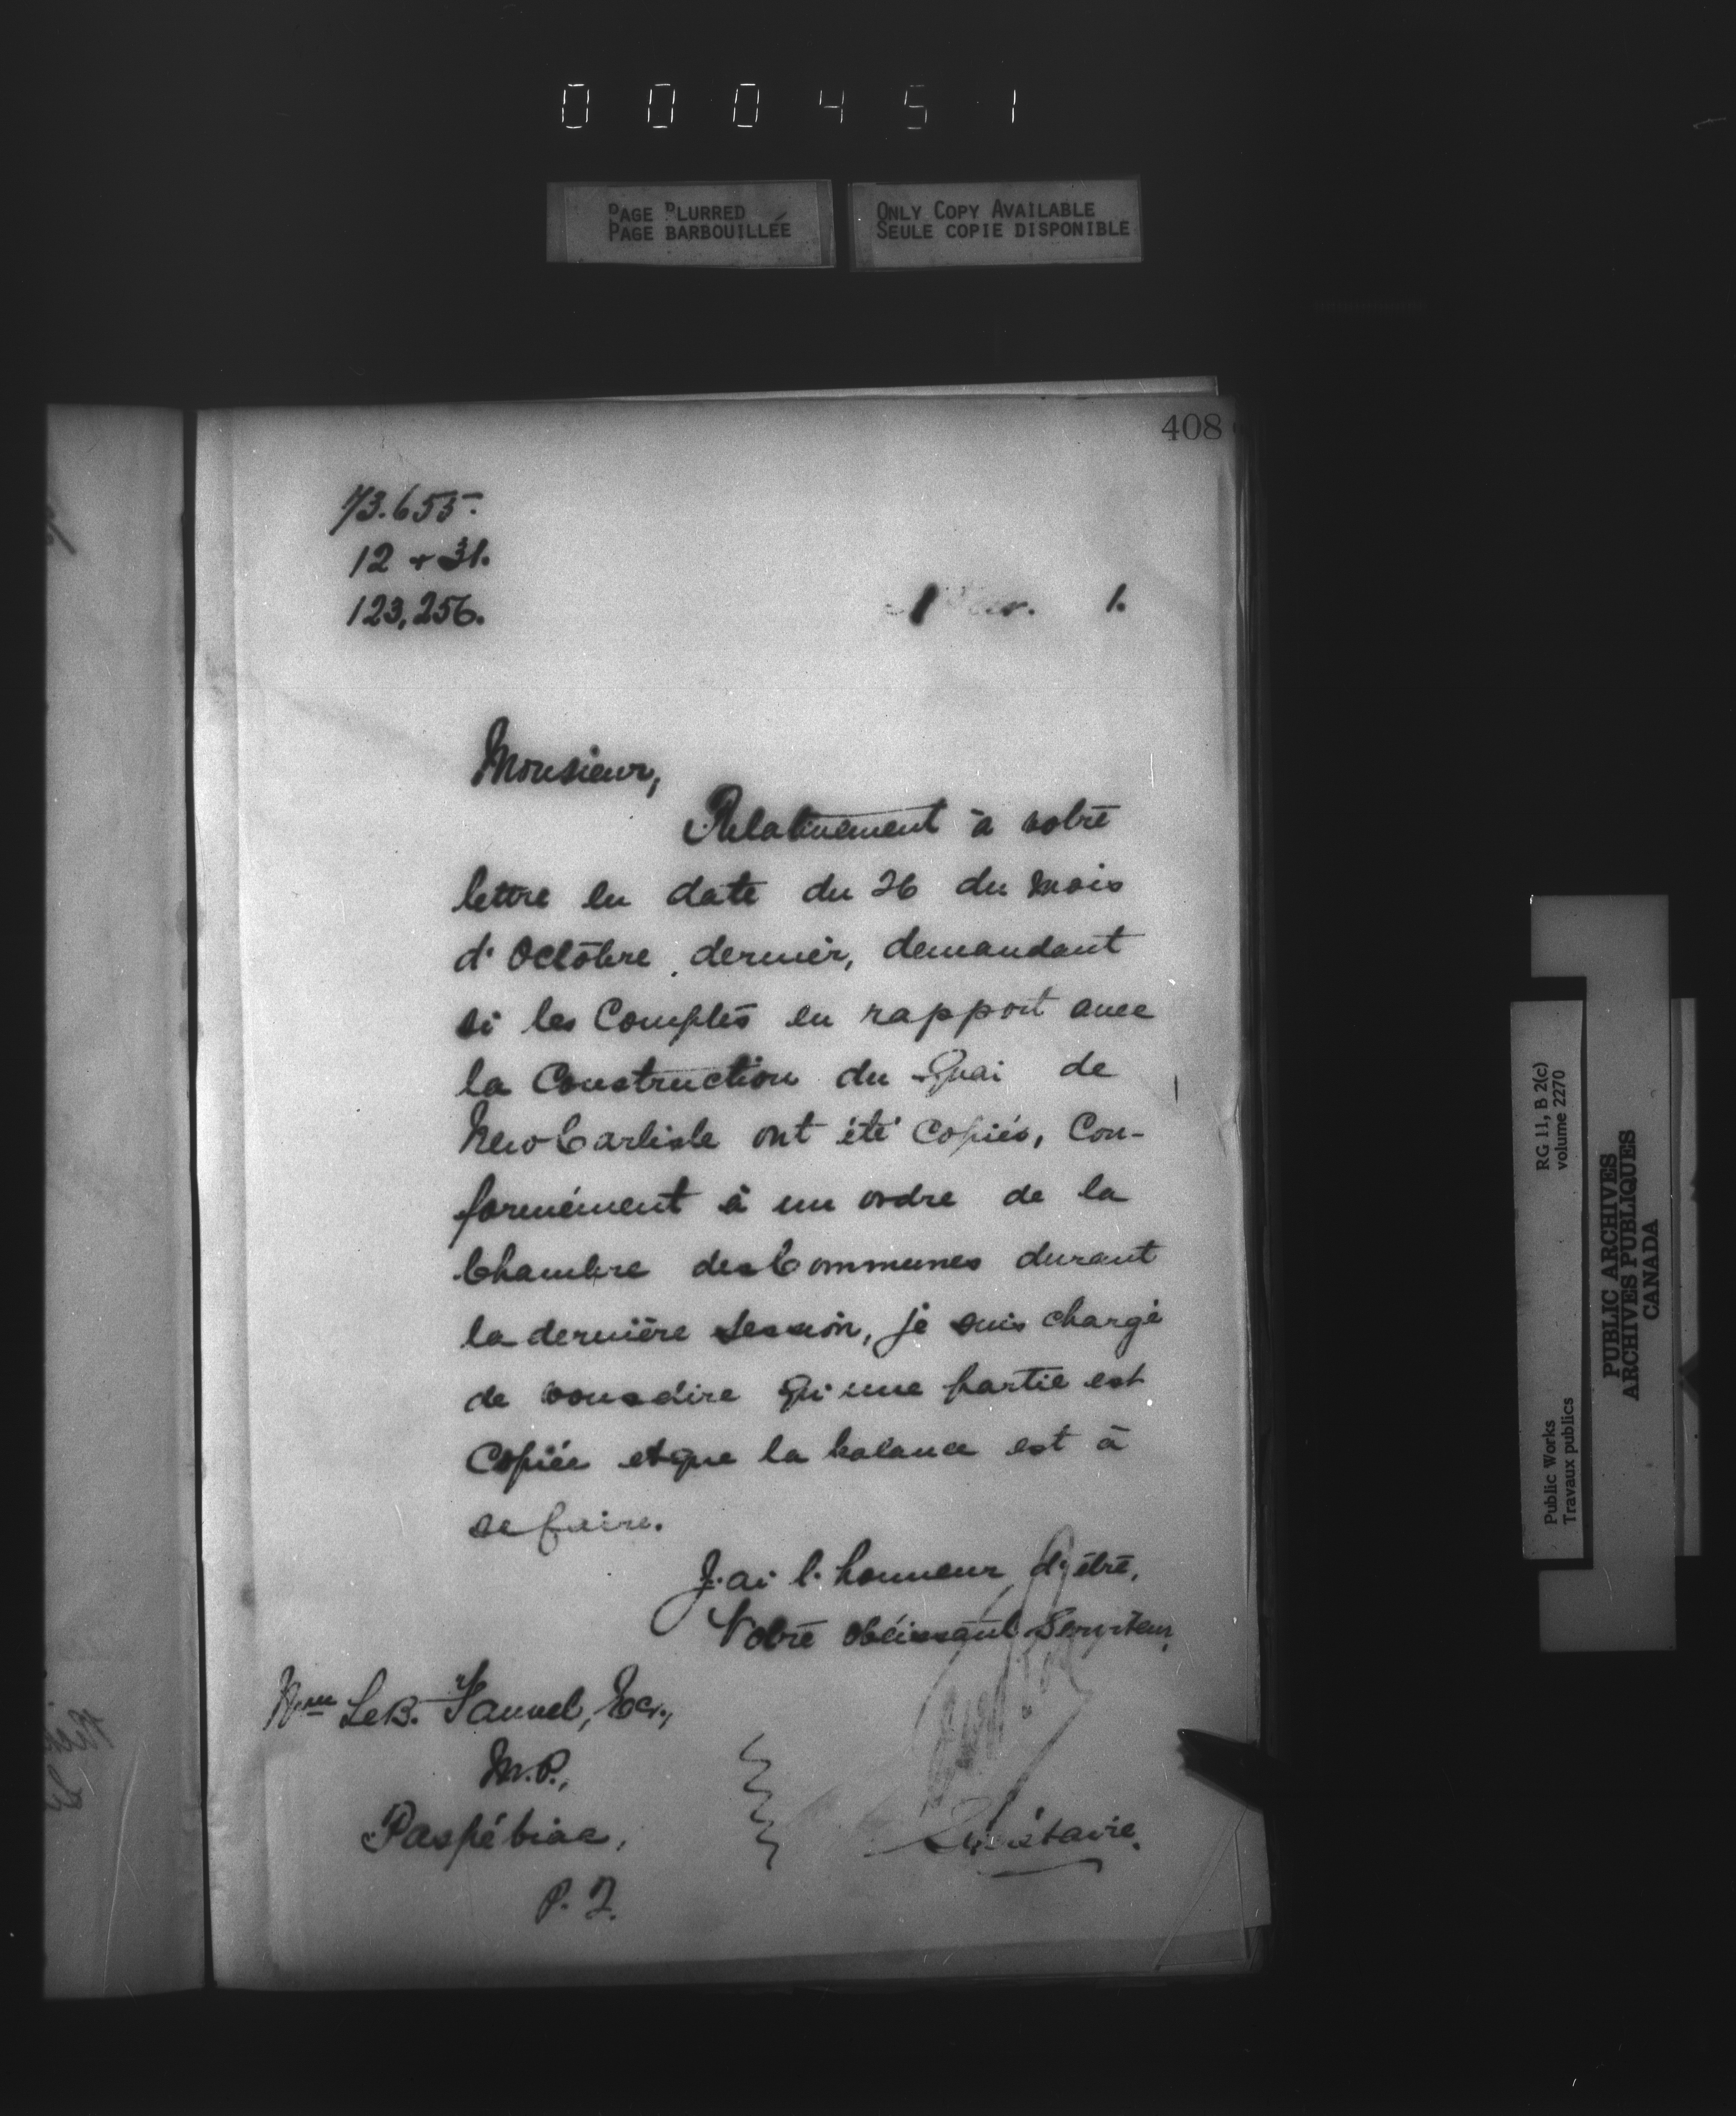 000451
PAGE BLURRED
PAGE BARBOUILLÉE
ONLY COPY AVAILABLE
SEULE COPIE DISPONIBLE
408
73.655.
12 + 31.
123,256.
1 1.
Monsieur,
Relativement à votre
lettre en date du 26 du mois
d'Octobre dernier, demandant
si les Comptes en rapport avec
la Construction du Quai de
New Carlisle ont été copiés, Con-
formément à un ordre de la
Chambre des Communes durant
la dernière Session, je suis chargé
de vous dire qu'une partie est
Copiée et que la balance est à
se faire.
J'ai l'honneur d'être,
Votre obéissant Serviteur,
Wm LeB. Fauvel, Ecr.,
M.P.,
Paspébiac,
P. Q.
Secrétaire.
RG 11, B 2(c)
volume 2270
Public Works
Travaux publics
PUBLIC ARCHIVES
ARCHIVES PUBLIQUES
CANADA